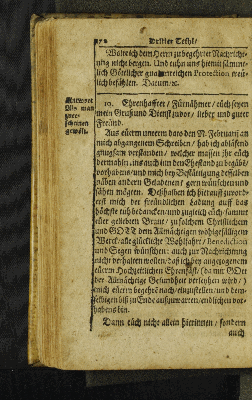 272 Dritter Theil/
Wolte ich dem Herrn zu begehrter Nachrich-
tung nicht bergen. Und thun uns hiemit sämmt-
lich Göttlicher gnadenreichen Protection treu-
lich befählen. Datum/&c.
Antwort
daß man
zuer-
scheinen
gewilt.
10. Ehrenhaffter / Fürnähmer / euch seyen
mein Gruß und Dienst zuvor / lieber und guter
Freünd.
Auß eüerm unterm dato den N. Februarii an
mich abgangenem Schreiben / hab ich ablösend
gnugsam verstanden / welcher massen ihr euch
dermahln / ins auch in den Ehestand zu begäbë/
vorhabens/und mich bey Bestätigung desselben
näben andern Geladenen / gern wünschen und
sähen möget. Deßhalben ich hierauff zuvor de-
rest mich der freündlichen Ladung auff das
höchste thu bedancken/und zugleich euch/sammt
euer geliebten Braut / zu solchem Christlichem
und GOTT dem Allmächtigen wohlgefälligem
Werck/alle glückliche Wohlfahrt / Benediction
und Segen wünschen: auch zur Nachrichtung
nicht verhalten wollen/daß ich bey angezogenem
euerm Hochzeitlichen Ehrenfäst/ (da mir GOtt
der Allmächtige Gesundheit verleyhen wird / )
euch eüerm begehrē nach/einzustellen/und dem-
selbigen biß zu Ende außzuwarten/endlichen vor-
habens bin.
Dann euch nicht allein hierinnen / sondern
auch